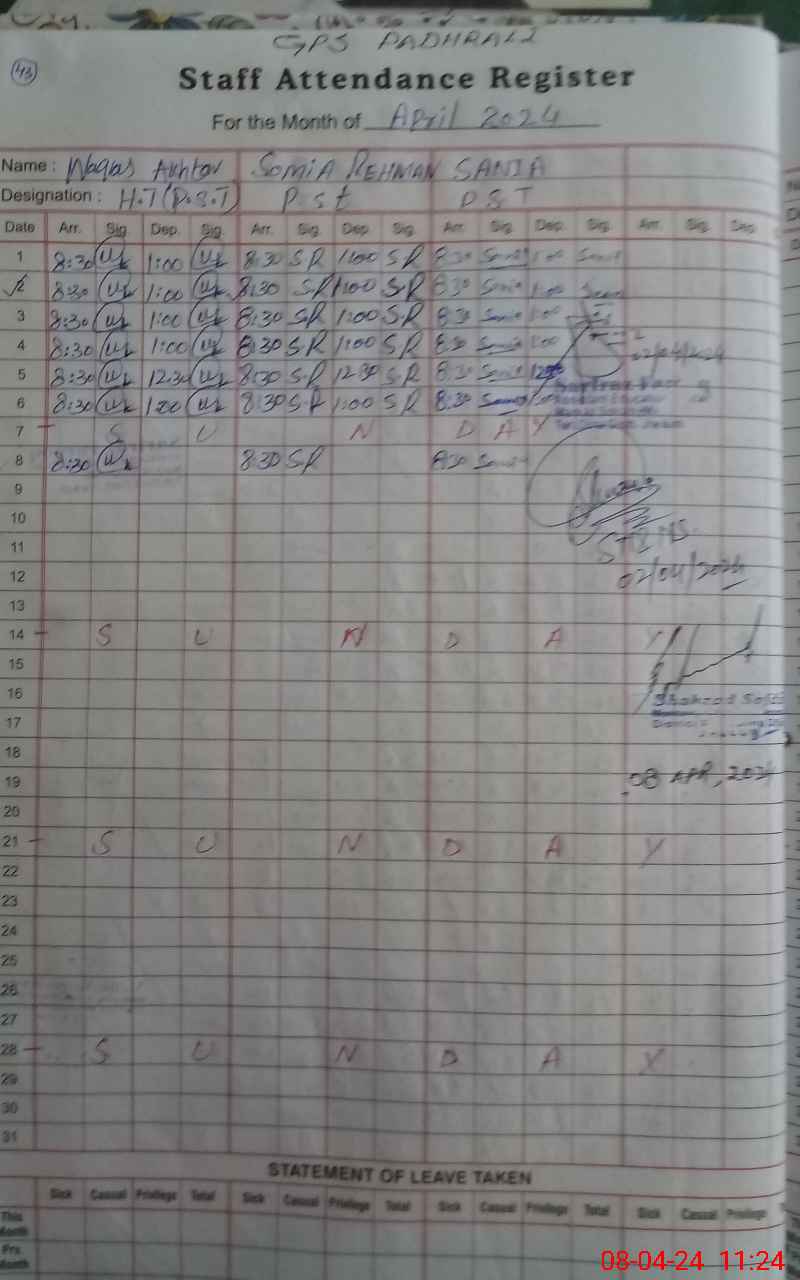 GPS PADHRALI
43
Staff Attendance Register
For the Month of April 2024
Name : Waqas Akhtar SOMIA REHMAN SANIA
Designation : H.T (P.S.T) P.s.t P.S.T
Date Arr. Sig. Dep. Sig. Arr. Sig. Dep. Sig. Arr. Sig. Dep. Sig. Arr. Sig. Dep.
1 8:30 1:00 8:30 S.R 1:00 S.R 8:30 Sania 1:00 Sania
2 8:30 1:00 8:30 S.R 1:00 S.R 8:30 Sania 1:00 Sania
3 8:30 1:00 8:30 S.R 1:00 S.R 8:30 Sania 1:00
4 8:30 1:00 8:30 S.R 1:00 S.R 8:30 Sania 1:00
02/04/2024
5 8:30 12:30 8:30 S.R 12:30 S.R 8:30 Sania 12:30
6 8:30 1:00 8:30 S.R 1:00 S.R 8:30 Sania
7 S U N D A Y
8 8:30 8:30 S.R 8:30 Sania
9
10
11
12
02/04/2024
13
14 S U N D A Y
15
16
Shahzad
17
18
19
08 APR, 2024
20
21 S U N D A Y
22
23
24
25
26
27
28 S U N D A Y
29
30
31
STATEMENT OF LEAVE TAKEN
Sick Casual Privilege Total Sick Casual Privilege Total Sick Casual Privilege Total Sick Casual Privilege
This Month
Prv. Month
08-04-24 11:24